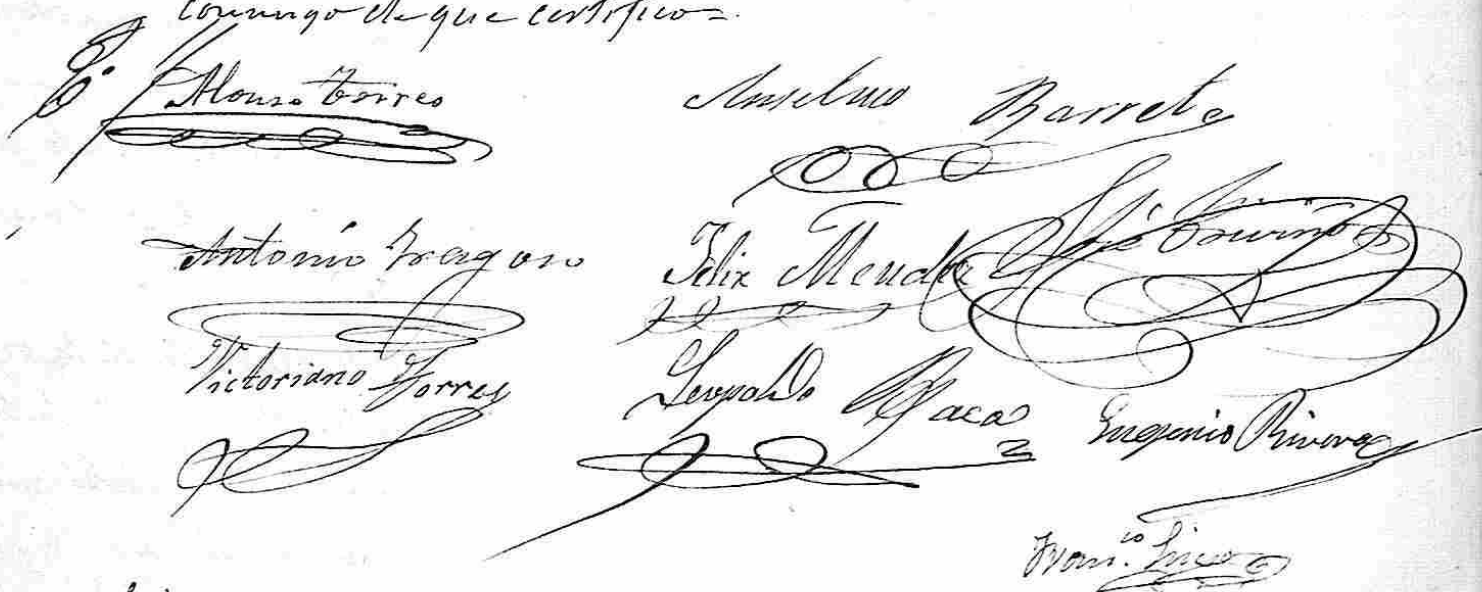 conmigo de que certifico=.
Alonso Torres
Anselmo Barreto
Antonio Fragoso
Felix Mendez
José Triviño
Victoriano Torres
Leopoldo
Eugenio Rivera
Fran.co